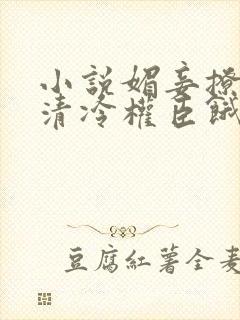 小説媚妾撩
清冷權臣餓
豆腐紅薯全麦